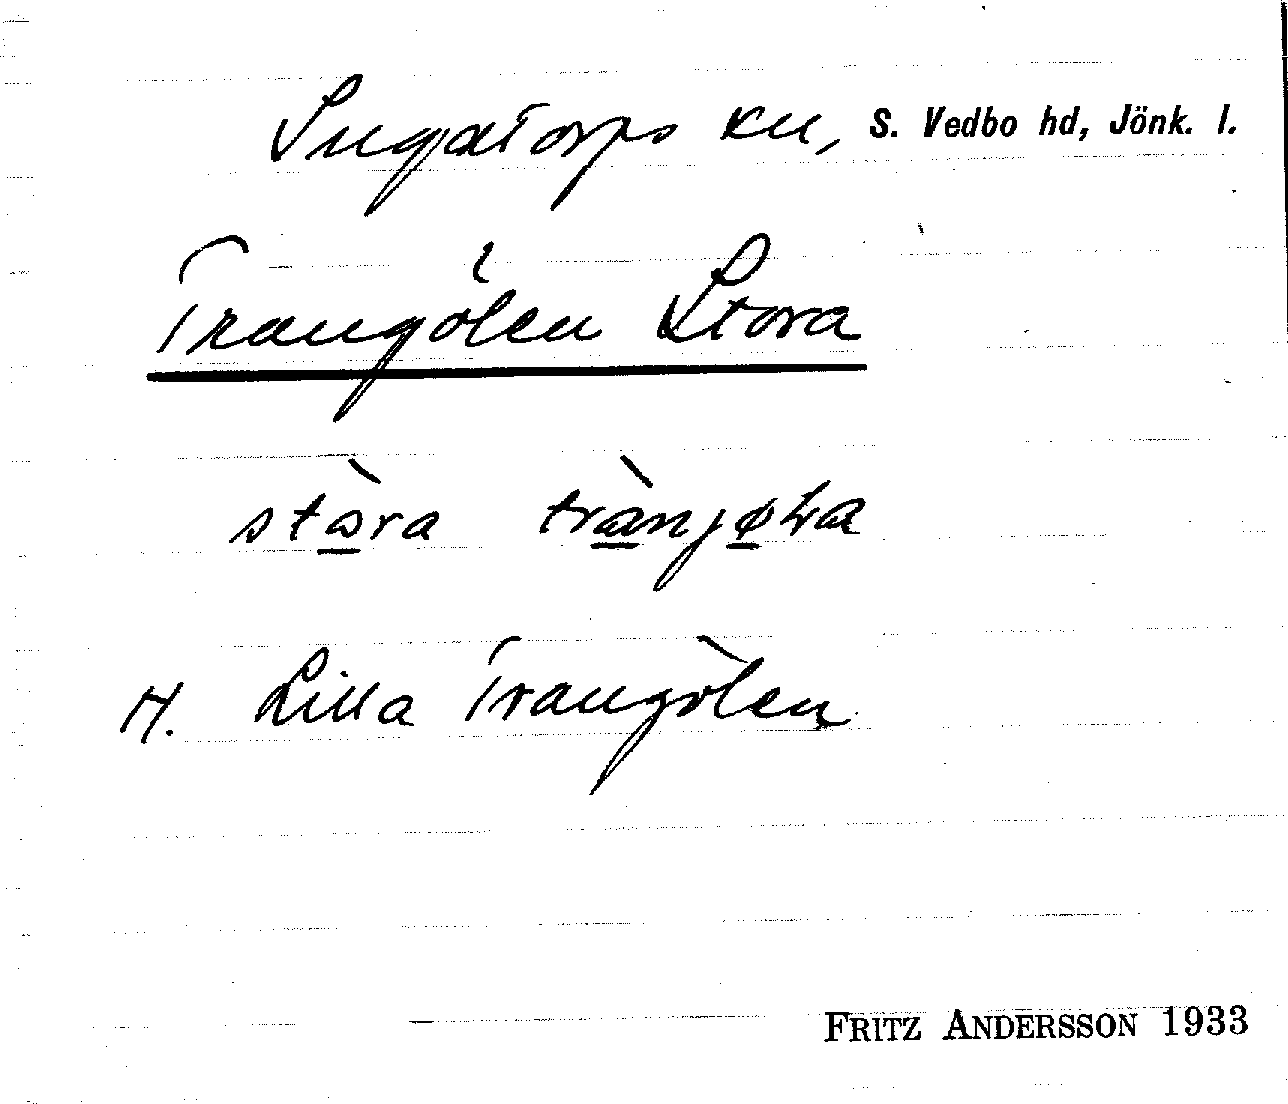 Ingatorps kn, S. Vedbo hd, Jönk. l.
Trangölen Stora
stòra trànjøLa
H. Lilla Trangölen
FRITZ ANDERSSON 1933